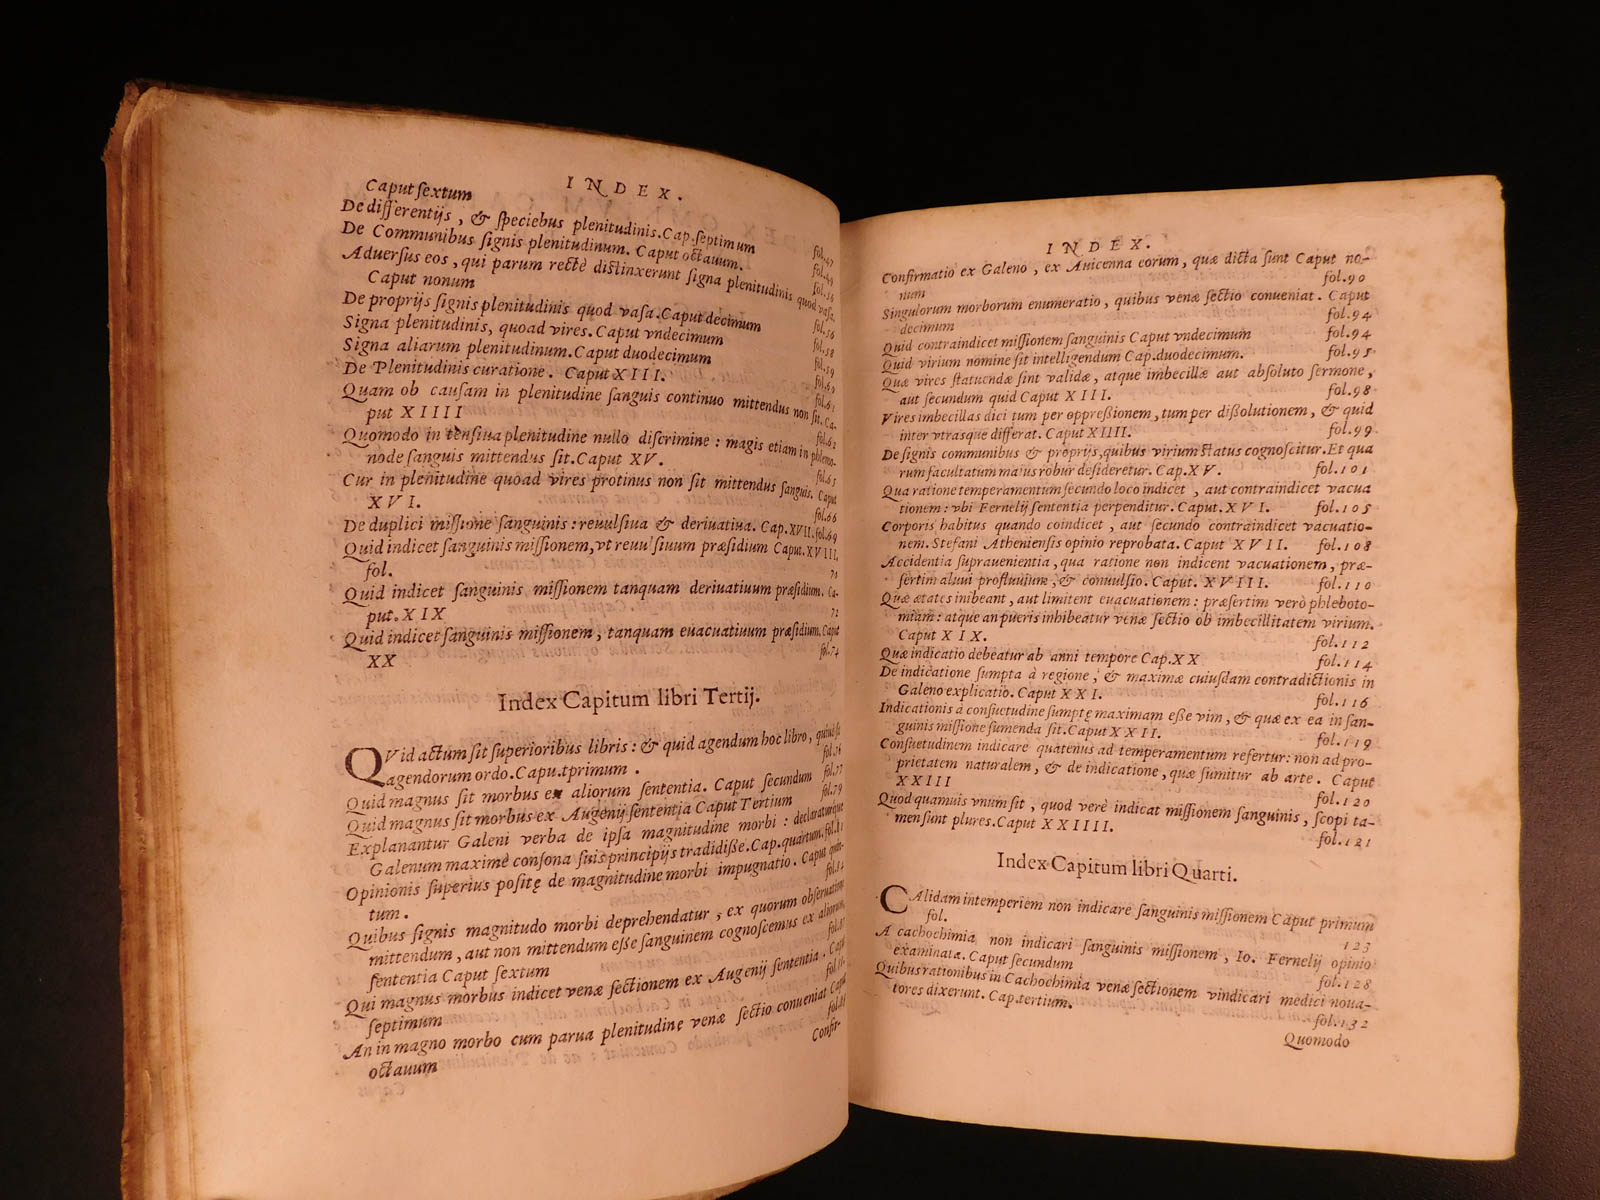 INDEX.
Caput ſextum
De differentijs, & ſpeciebus plenitudinis. Cap. ſeptimum fol. 47
De Communibus ſignis plenitudinum. Caput octauum. fol. 49
Aduerſus eos, qui parum rectè diſtinxerunt ſigna plenitudinis quod vaſa.
Caput nonum
De proprijs ſignis plenitudinis quod vaſa. Caput decimum fol. 56
Signa plenitudinis, quoad vires. Caput vndecimum fol. 58
Signa aliarum plenitudinum. Caput duodecimum fol. 59
De Plenitudinis curatione. Caput XIII. fol. 60
Quam ob cauſam in plenitudine ſanguis continuo mittendus non ſit. Ca-
put XIIII fol. 62
Quomodo in tenſiua plenitudine nullo diſcrimine : magis etiam in phlego-
node ſanguis mittendus ſit. Caput XV. fol. 65
Cur in plenitudine quoad vires protinus non ſit mittendus ſanguis. Caput
XVI. fol. 66
De duplici miſſione ſanguinis : reuulſiua & deriuatiua. Cap. XVII. fol. 69
Quid indicet ſanguinis miſſionem, vt reuulſiuum præſidium Caput. XVIII.
fol. 70
Quid indicet ſanguinis miſſionem tanquam deriuatiuum præſidium. Ca-
put. XIX 72
Quid indicet ſanguinis miſſionem, tanquam euacuatiuum præſidium. Caput
XX fol. 74
Index Capitum libri Tertij.
QVid actum ſit ſuperioribus libris : & quid agendum hoc libro,
agendorum ordo. Caput primum. fol. 76
Quid magnus ſit morbus ex aliorum ſententia. Caput ſecundum fol. 77
Quid magnus ſit morbus ex Augenij ſententia Caput Tertium fol. 79
Explanantur Galeni verba de ipſa magnitudine morbi : declaraturque
Galenum maximè conſona ſuis principijs tradidiſſe. Cap. quartum. fol. 81
Opinionis ſuperius poſitę de magnitudine morbi impugnatio. Caput quin-
tum.
Quibus ſignis magnitudo morbi deprehendatur, ex quorum obſeruatione
mittendum, aut non mittendum eſſe ſanguinem cognoſcemus ex aliorum,
ſententia Caput ſextum
Qui magnus morbus indicet venæ ſectionem ex Augenij ſententia. Caput
ſeptimum
An in magno morbo cum parua plenitudine venæ ſectio conueniat Caput
octauum
Confir-
INDEX.
Confirmatio ex Galeno, ex Auicenna eorum, quæ dicta ſunt Caput no-
num fol. 90
Singulorum morborum enumeratio, quibus venæ ſectio conueniat. Caput
decimum fol. 94
Quid contraindicet miſſionem ſanguinis Caput vndecimum fol. 94
Quid virium nomine ſit intelligendum Cap. duodecimum. fol. 95
Quæ vires ſtatuendæ ſint validæ, atque imbecillæ aut abſoluto ſermone,
aut ſecundum quid Caput XIII. fol. 98
Vires imbecillas dici tum per oppreſſionem, tum per diſſolutionem, & quid
inter vtrasque differat. Caput XIIII. fol. 99
De ſignis communibus & proprijs, quibus virium ſtatus cognoſcitur. Et qua
rum facultatum maius robur deſideretur. Cap. XV. fol. 101
Qua ratione temperamentum ſecundo loco indicet, aut contraindicet vacua
tionem : vbi Fernelij ſententia perpenditur. Caput. XVI. fol. 105
Corporis habitus quando coindicet, aut ſecundo contraindicet vacuatio-
nem. Stefani Athenienſis opinio reprobata. Caput XVII. fol. 108
Accidentia ſuprauenientia, qua ratione non indicent vacuationem, præ-
ſertim alui profluuium, & conuulſio. Caput. XVIII. fol. 110
Quæ ætates inibeant, aut limitent euacuationem : præſertim verò phleboto-
miam : atque an pueris inhibeatur venæ ſectio ob imbecillitatem virium.
Caput XIX. fol. 112
Quæ indicatio debeatur ab anni tempore Cap. XX fol. 114
De indicatione ſumpta à regione, & maximæ cuiuſdam contradictionis in
Galeno explicatio. Caput XXI. fol. 116
Indicationis à conſuetudine ſumptę maximam eſſe vim, & quæ ex ea in ſan-
guinis miſſione ſumenda ſit. Caput XXII. fol. 119
Conſuetudinem indicare quatenus ad temperamentum refertur: non ad pro-
prietatem naturalem, & de indicatione, quæ ſumitur ab arte. Caput
XXIII fol. 120
Quod quamuis vnum ſit, quod verè indicat miſſionem ſanguinis, ſcopi ta-
men ſunt plures. Caput XXIIII. fol. 121
Index Capitum libri Quarti.
CAlidam intemperiem non indicare ſanguinis miſſionem Caput primum
fol. 123
A cachochimia non indicari ſanguinis miſſionem, Io. Fernelij opinio
examinata. Caput ſecundum fol. 128
Quibus rationibus in Cachochimia venæ ſectionem vindicari medici noua-
tores dixerunt. Cap. tertium. fol. 132
Quomodo